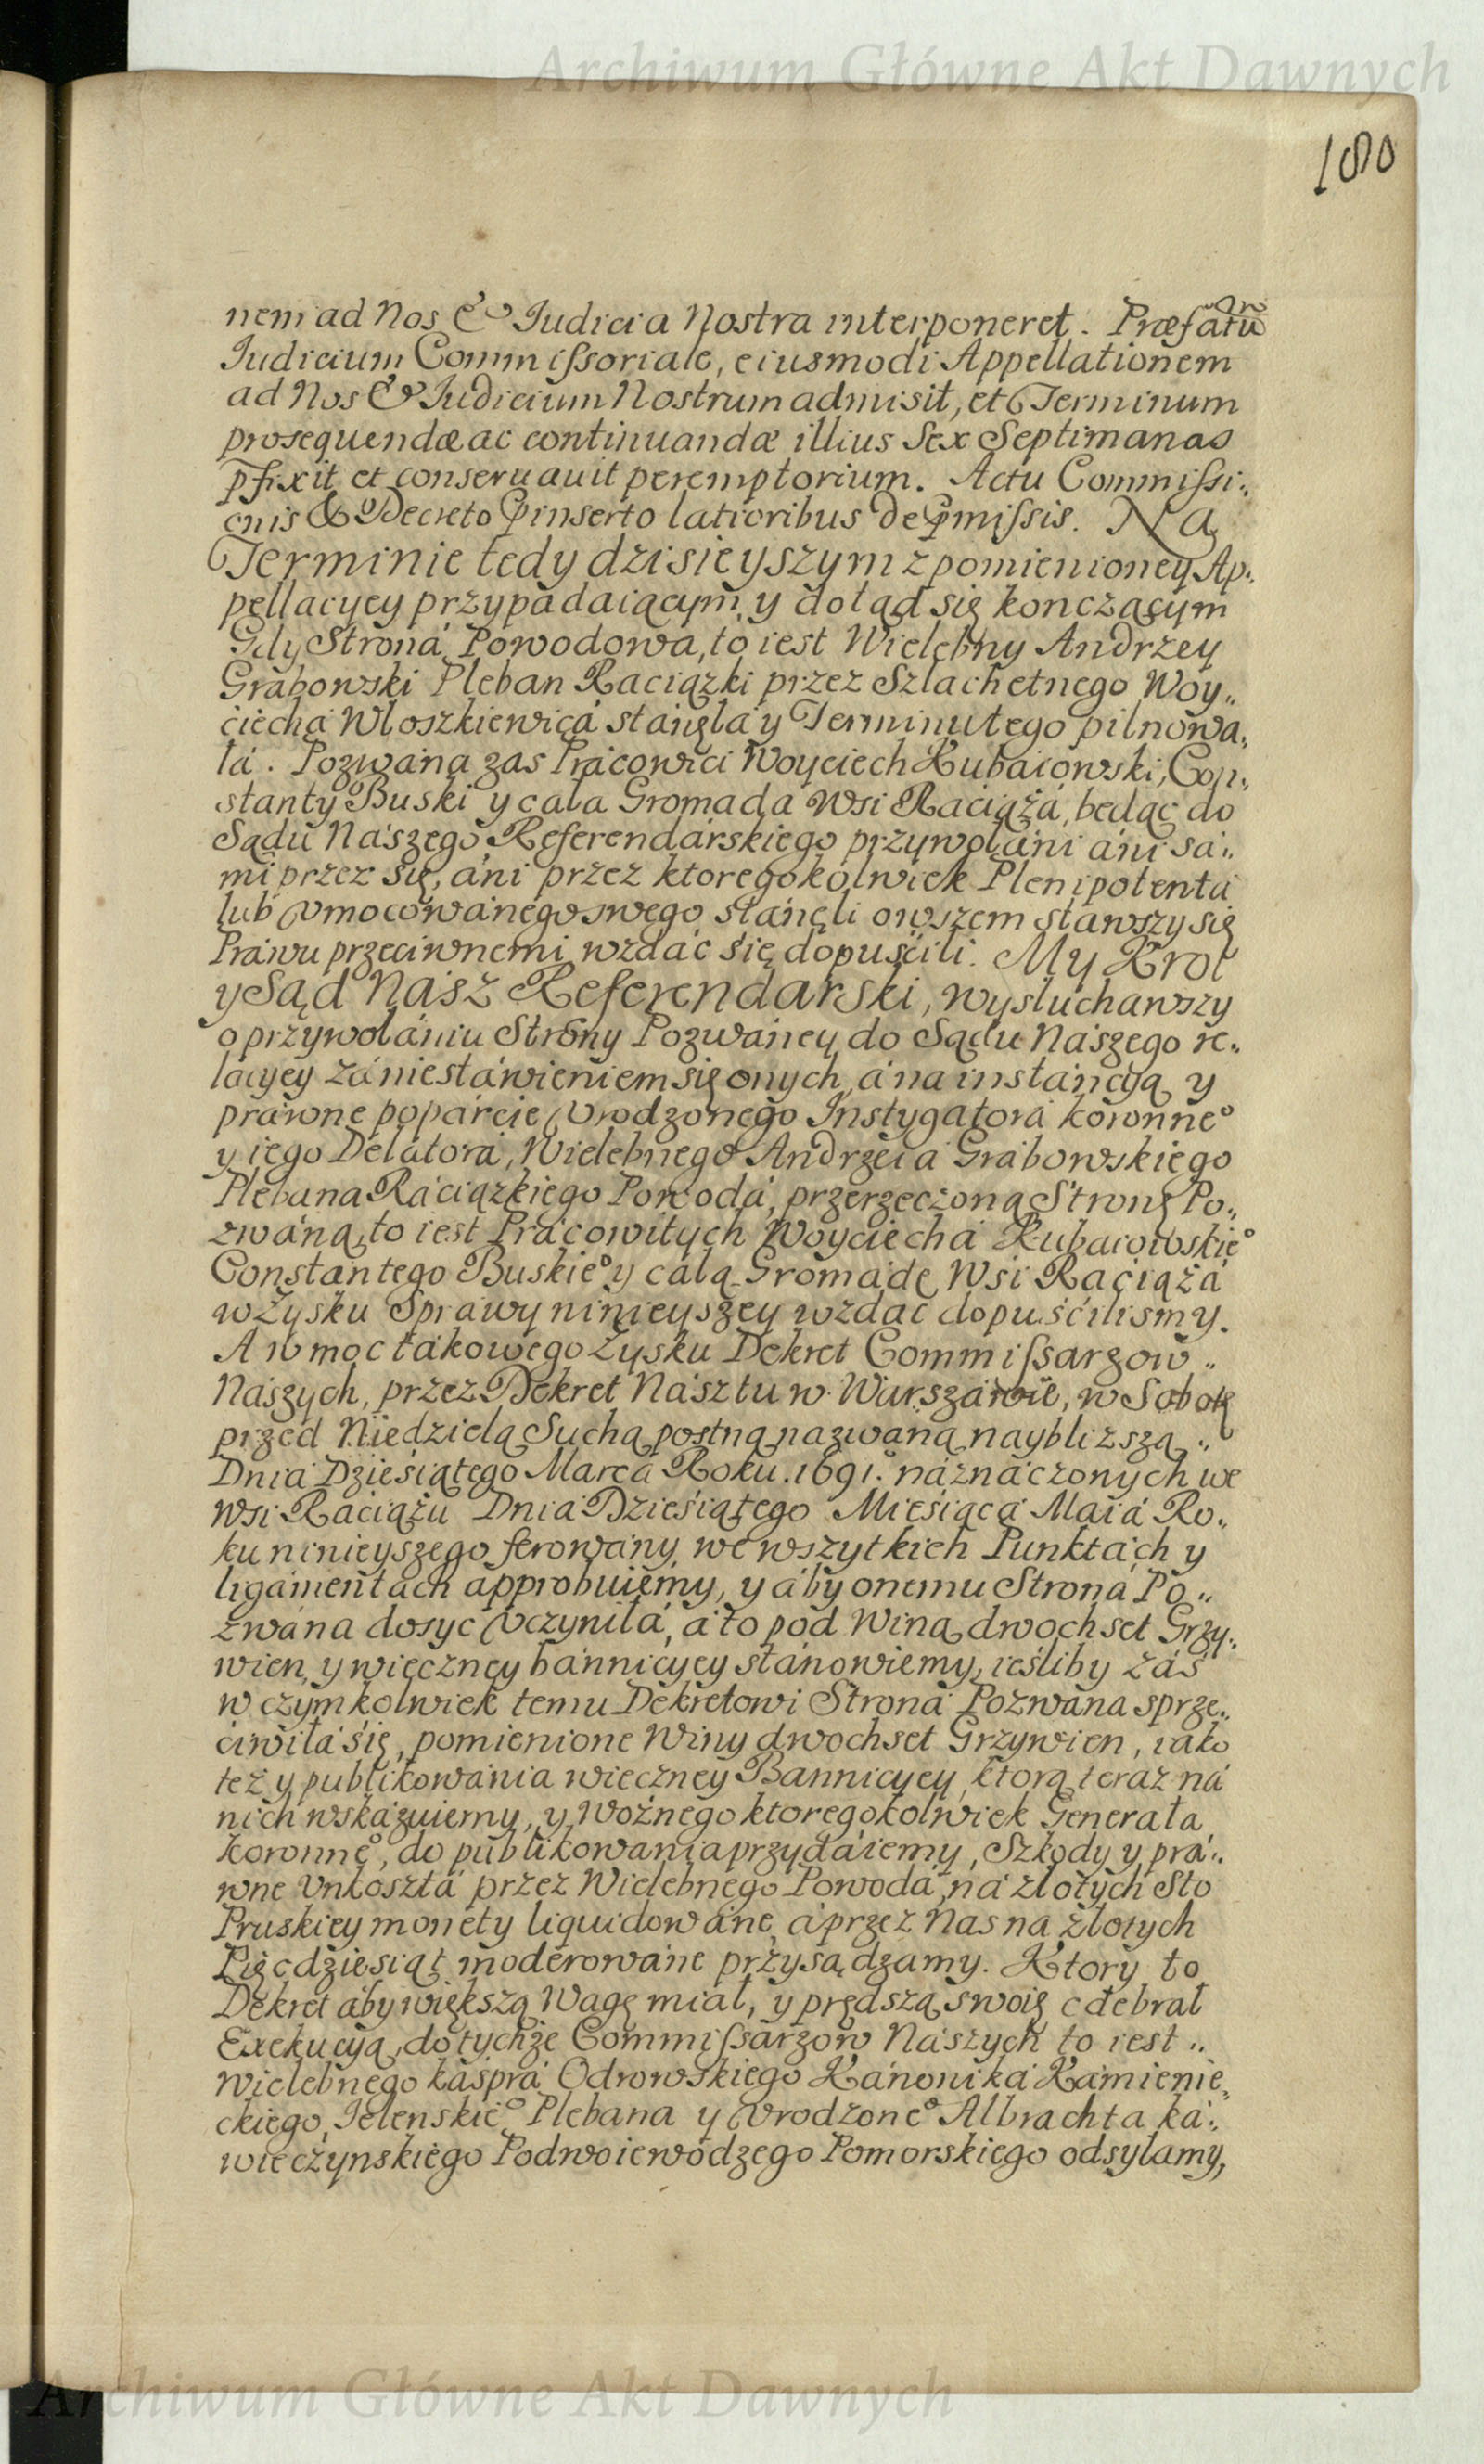 Archiwum Główne Akt Dawnych
180
nem ad Nos & Iudicia Nostra interponeret. Præfatũ
Iudicium Commissoriale, eiusmodi Appellationem
ad Nos & Iudicium Nostrum admisit, et Terminum
prosequendæ ac continuandæ illius Sex Septimanas
pfixit et conseruauit peremptorium. Actu Commissi„
onis & Decreto pinserto latioribus de pmissis. Na
Terminie tedy dzisieyszym z pomienioney Ap„
pellacyey przypádaiącym, y dotąd się konczącym
Gdy Stroná Powodowa, to iest Wielebny Andrzey
Grabowski Pleban Raciązki przez Szlachetnego Woy„
ciechá Wloszkiewicá stánęlá y Terminu tego pilnowa„
lá. Pozwáná zas Prácowici Woyciech Kubaiowski, Con„
stanty Buski y cala Gromadá Wsi Raciąźá, będąc do
Sądu Nászego Referendárskiego przywoláni áni sá„
mi przez się, áni przez ktoregokolwiek Plenipotentá
lub vmocowánego swego stánęli owszem stawszy się
Práwu przeciwnemi wzdác się dopuścili. My Krol
y Sąd Nasz Referendarski, wysluchawszy
o przywolániu Strony Pozwáney do Sądu Nászego re„
lacyey zá niestáwieniem się onych, á na instáncyą y
práwne popárcie Vrodzonego Instygatorá koronne°
y iego Delátorá, Wielebnego Andrzeiá Grábowskiego
Plebana Ráciązkiego Powodá, przerzeczoną Stronę Po„
zwáną, to iest Prácowitych Woyciechá Kubaiowskie°
Constántego Buskie° y całą Gromádę Wsi Ráciąźá
w Zysku Sprawy ninieyszey wzdać dopuścilismy.
A w moc tákowego Zysku Dekret Commissarzow„
Nászych, przez Dekret Nász tu w Warszáwie, w Sobotę
przed Niedzielą Suchą postną názwáną naybliższą„
Dniá Dziesiątego Marcá Roku 1691. náznáczonych we
Wsi Raciążu Dniá Dziesiątego Miesiąca Maiá Ro„
ku ninieyszego ferowány, we wszytkich Punktách y
ligámentách approbuiemy, y áby onemu Stroná Po„
zwána dosyć vczynilá, á to pod Winą dwoch set Grzy„
wien, y wieczney bánnicyey stánowiemy, ieśliby záś
w czymkolwiek temu Dekretowi Stroná Pozwána sprze„
ciwilá się, pomienione Winy dwochset Grzywien, iako
też y publikowánia wieczney Bannicyey, ktorą teraz ná
nich wskázuiemy, y Woźnego ktoregokolwiek Generałá
koronne°, do publikowánia przydáiemy, Szkody y prá„
wne Vnkosztá przez Wielebnego Powodá ná złotych Sto
Pruskiey monety liquidowáne, á przez Nas ná złotych
Pięcdziesiąt moderowáne przysądzamy. Ktory to
Dekret áby większą Wagę miał, y prędszą swoię odebrał
Exekucyą, do tychże Commissarzow Nászych to iest„
Wielebnego káspra Odrowskiego Kánoniká Kámienie„
ckiego, Ielenskie° Plebana y Vrodzone° Albrachta ká„
wieczynskiego Podwoiewodzego Pomorskiego odsylamy,
Archiwum Główne Akt Dawnych